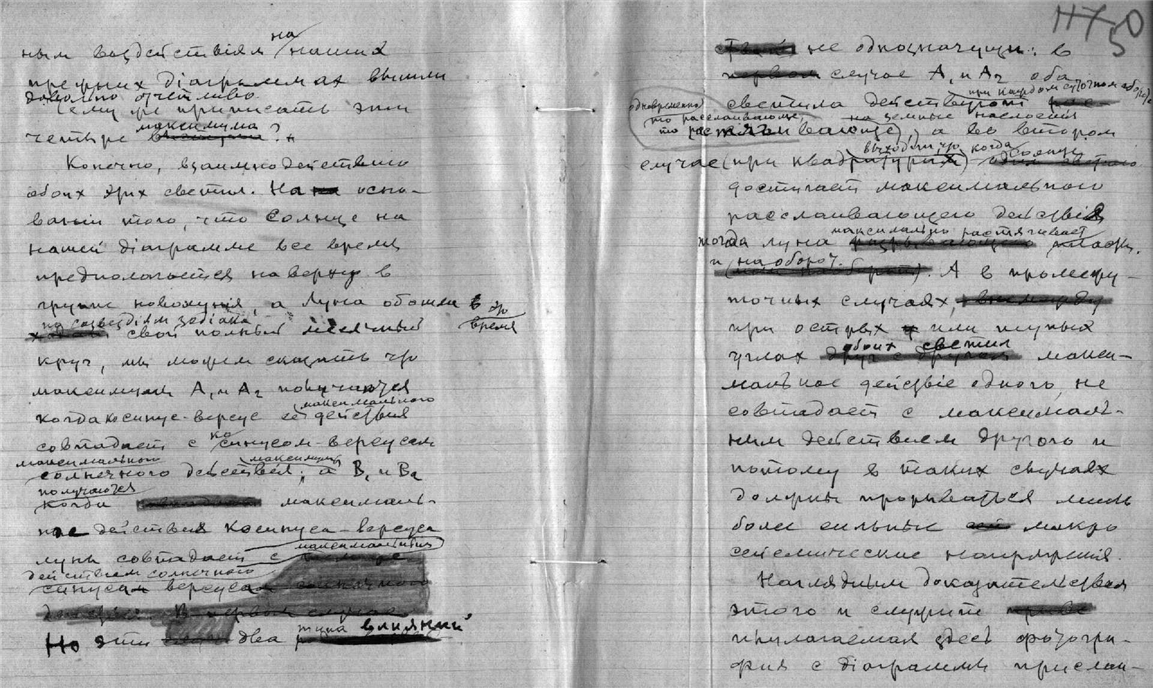 ным воздействіям на наших
прежних діаграммах вышли
довольно отчетливо
Чему же приписать эти
четыре максимума?
Конечно, взаимнодействию
обоих этих светил. На осно-
ваніи того, что Солнце на
нашей діаграмме все время
предпологается на верху в
группе новолунія, а Луна обошла в это время
по созвездіям зодіака
свой полный месячный
круг, мы можем сказать что
максимумы А₁ и А₂ получаются
когда косинус-версус ее максимального действія
совпадает с косинусом-версусом
максимального
солнечного действія; а максимумы В₁ и В₂
получаются
когда максималь-
ное действия косинуса-версуса
луны совпадает с максимальным
действием солнечного
синуса версуса
Но эти два типа влияний
475
не однозначущи: в
случае А₁ и А₂ оба
светила действуют при каждом суточном обороте
одновременно то расслаивающе, на земные наслоения
то стягивающе, а во втором
случае (при квадратурах) выходит что, когда одно
достигает максимального
расслаивающего действія
тогда луна максимально растягивает
и наоборот. А в промежу-
точных случаях,
при острых или тупых
углах обоих светил макси-
мальное действіе одного, не
совпадает с максималь-
ным действием другого и
потому в таких случаях
должны прорываться лишь
более сильные макро
сейсмические напряжения
Наглядным доказательством
этого и служит
прилагаемая здесь фотогра-
фия с діаграммы прислан-